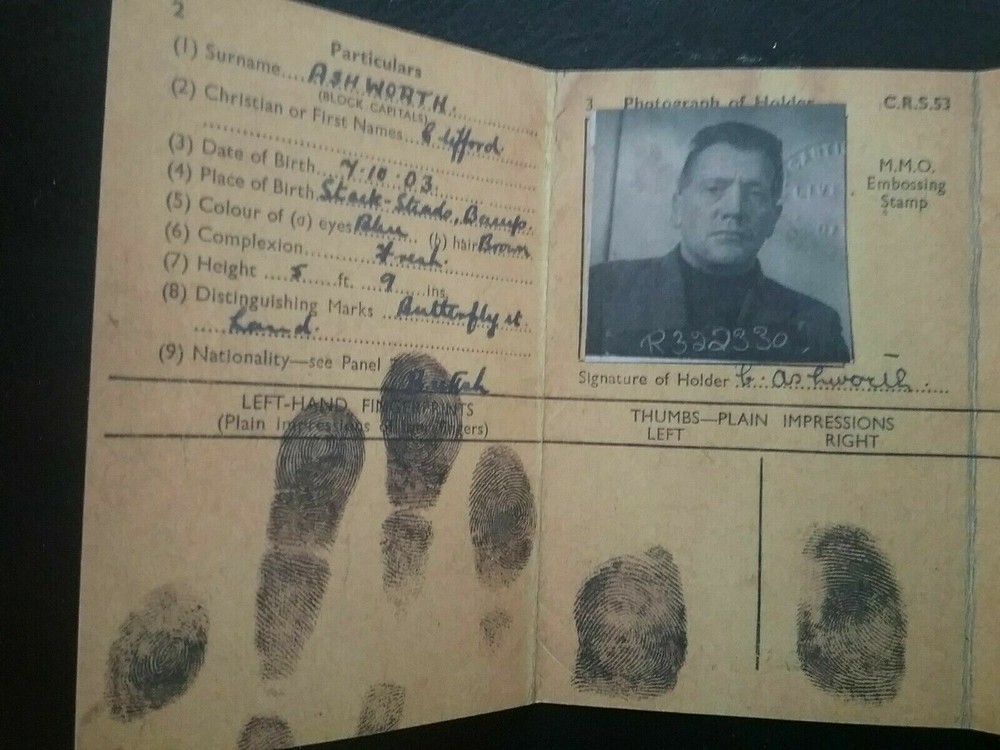 2
Particulars
(1) Surname.... ASHWORTH.
(BLOCK CAPITALS)
(2) Christian or First Names... Clifford.
(3) Date of Birth.. 7.10.03.
(4) Place of Birth Stack-Steads, Bacup.
(5) Colour of (a) eyes Blue (b) hair Brown
(6) Complexion........ Fresh.
(7) Height .... 5 ....ft. .. 9 .....ins.
(8) Distinguishing Marks .. Butterfly
hand.
(9) Nationality—see Panel
British
LEFT-HAND FINGERPRINTS
(Plain impressions of fingers)
3 Photograph of Holder C.R.S.53
M.M.O.
Embossing
Stamp
R332330
Signature of Holder C. Ashworth
THUMBS—PLAIN IMPRESSIONS
LEFT RIGHT